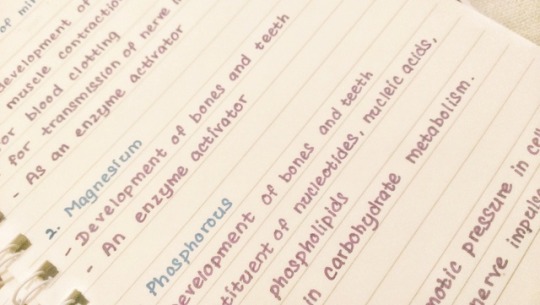 of mi
development of
muscle contractio
or blood clotting
for transmission of nerve
- As an enzyme activator
2. Magnesium
- Development of bones and teeth
- An enzyme activator
Phosphorous
evelopment of bones and teeth
stituent of nucleotides, nucleic acids,
phospholipids
in carbohydrate metabolism.
motic pressure in cell
erve impulse